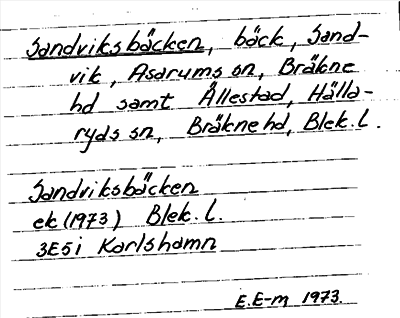 Sandviksbäcken, bäck, Sand-
vik, Asarums sn, Bräkne
hd samt Ållestad, Hälla-
ryds sn, Bräkne hd, Blek.l.
Sandviksbäcken
ek (1973) Blek.l.
3E5i Karlshamn
E.E-m 1973.